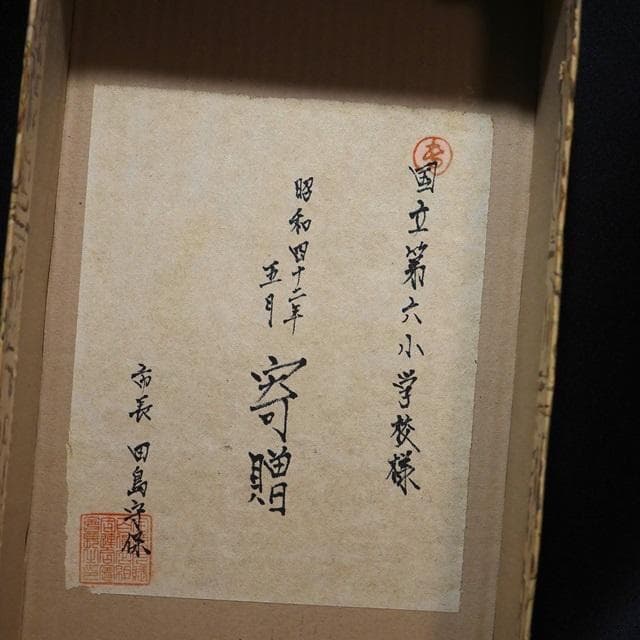 国立第六小学校様
昭和四十二年
五月
寄贈
市長 田島守保